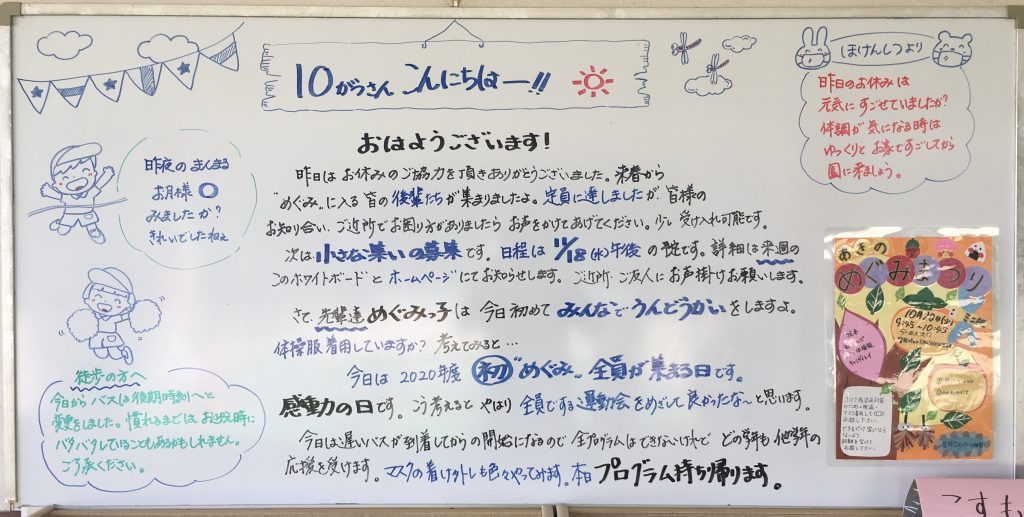 10がつさん こんにちはー!!
ほけんしつより
昨日のお休みは
元気にすごせていましたか?
体調が気になる時は
ゆっくりとお家ですごしてから
園に来ましょう。
昨夜のまんまる
お月様
みましたか?
きれいでしたねぇ
おはようございます!
昨日はお休みのご協力を頂きありがとうございました。来春から
"めぐみ"に入る皆の後輩たちが集まりましたよ。定員に達しましたが、皆様の
お知り合い、ご近所でお困り方がありましたらお声をかけてあげてください。少し受け入れ可能です。
次は小さな集いの募集です。日程は11/18(水)午後の予定です。詳細は来週の
このホワイトボードとホームページにてお知らせします。ご近所・ご友人にお声掛けお願いします。
さて、先輩達めぐみっ子は今日初めてみんなでうんどうかいをしますよ。
体操服着用していますか? 考えてみると…
今日は2020年度 初 "めぐみ" 全員が集まる日です。
感動の日です。こう考えるとやはり全員でする運動会をめざして良かったな~と思います。
今日は遅いバスが到着してからの開始になるので全プログラムはできないけれど、どの学年も他学年の
応援を受けます。マスクの着け外しも色々やってみます。本日プログラム持ち帰ります。
徒歩の方へ
今日からバスは後期時刻へと
変更をしました。慣れるまでは、お迎え時に
バタバタしていることもあるかもしれません。
ご了承ください。
あきの
めぐみまつり
9:45~10:45
コロナ感染症対策
のため・検温・
マスク着用して
お越し下さい。